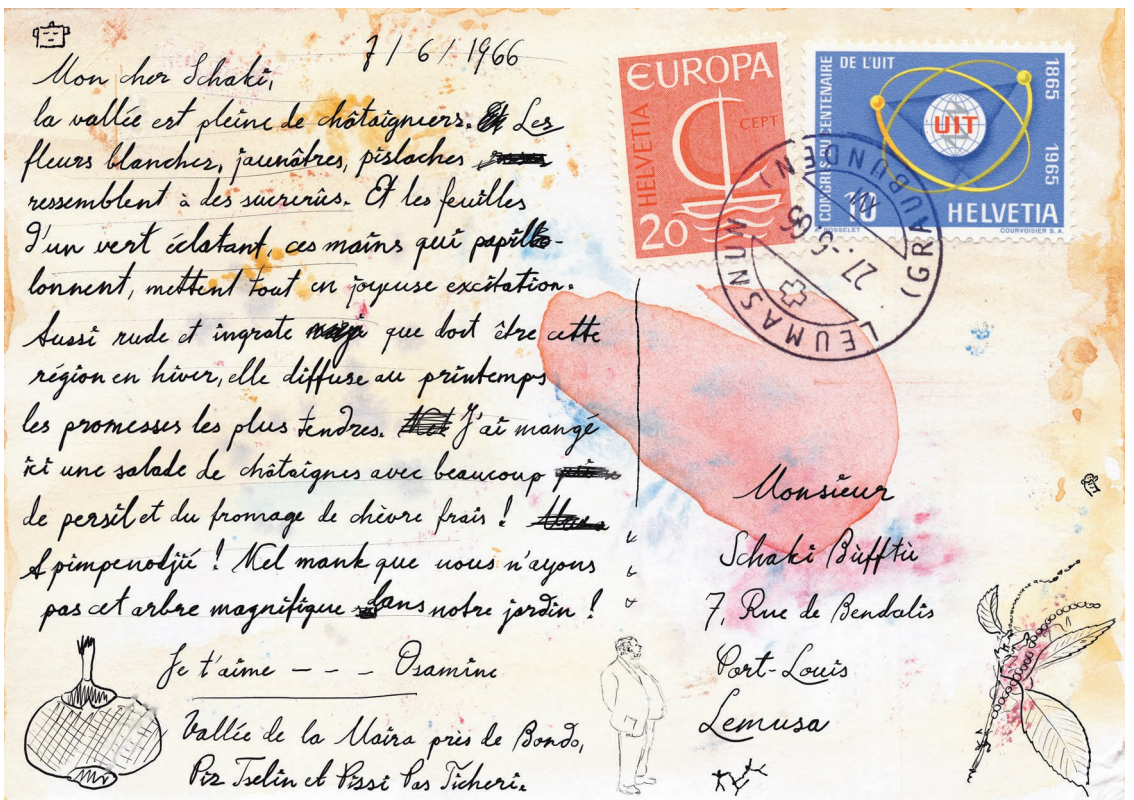 7/6/1966
Mon cher Schaki,
la vallée est pleine de châtaigniers. Les
fleurs blanches, jaunâtres, pistaches
ressemblent à des sucreries. Et les feuilles
d'un vert éclatant, ces mains qui papil-
lonnent, mettent tout en joyeuse excitation.
Aussi rude et ingrate que doit être cette
région en hiver, elle diffuse au printemps
les promesses les plus tendres. J'ai mangé
ici une salade de châtaignes avec beaucoup
de persil et du fromage de chèvre frais !
Apimpenodjü ! Mel mank que nous n'ayons
pas cet arbre magnifique dans notre jardin !
Je t'aime - - - Osamine
Vallée de la Maira près de Bondo,
Piz Tselin et Pissi Pas Ticheri.
EUROPA
HELVETIA
CEPT
20
CONGRÈS DU CENTENAIRE DE L'UIT
1865 1965
UIT
10
HELVETIA
COURVOISIER S.A.
LEUMASNUN (GRAUBÜNDEN)
Monsieur
Schaki Büfftü
7, Rue de Bendalis
Port-Louis
Lemusa